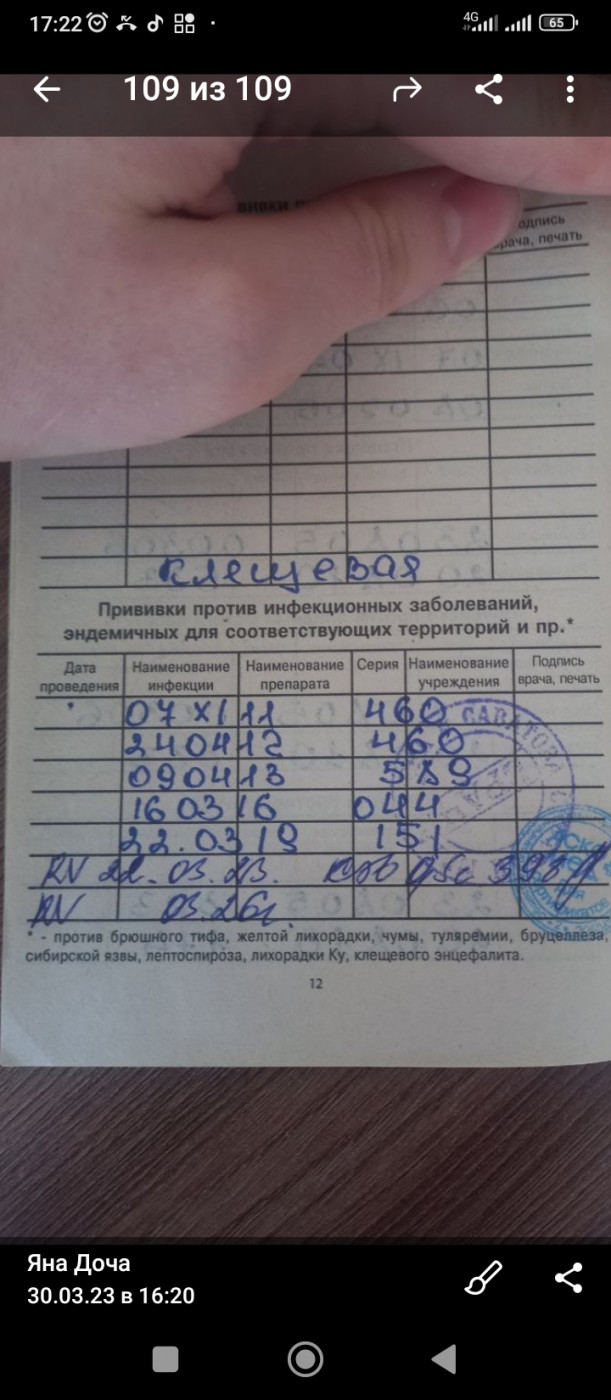 17:22
4G
65
109 из 109
одпись
рача, печать
клещевая
Прививки против инфекционных заболеваний,
эндемичных для соответствующих территорий и пр.*
Дата проведения Наименование инфекции Наименование препарата Серия Наименование учреждения Подпись врача, печать
07 XI 11 460
24 04 12 460
09 04 13 589
16 03 16 044
22.03 19 151
RV 22.03.23.
RV 03.26г.
* - против брюшного тифа, желтой лихорадки, чумы, туляремии, бруцеллеза,
сибирской язвы, лептоспироза, лихорадки Ку, клещевого энцефалита.
12
Яна Доча
30.03.23 в 16:20